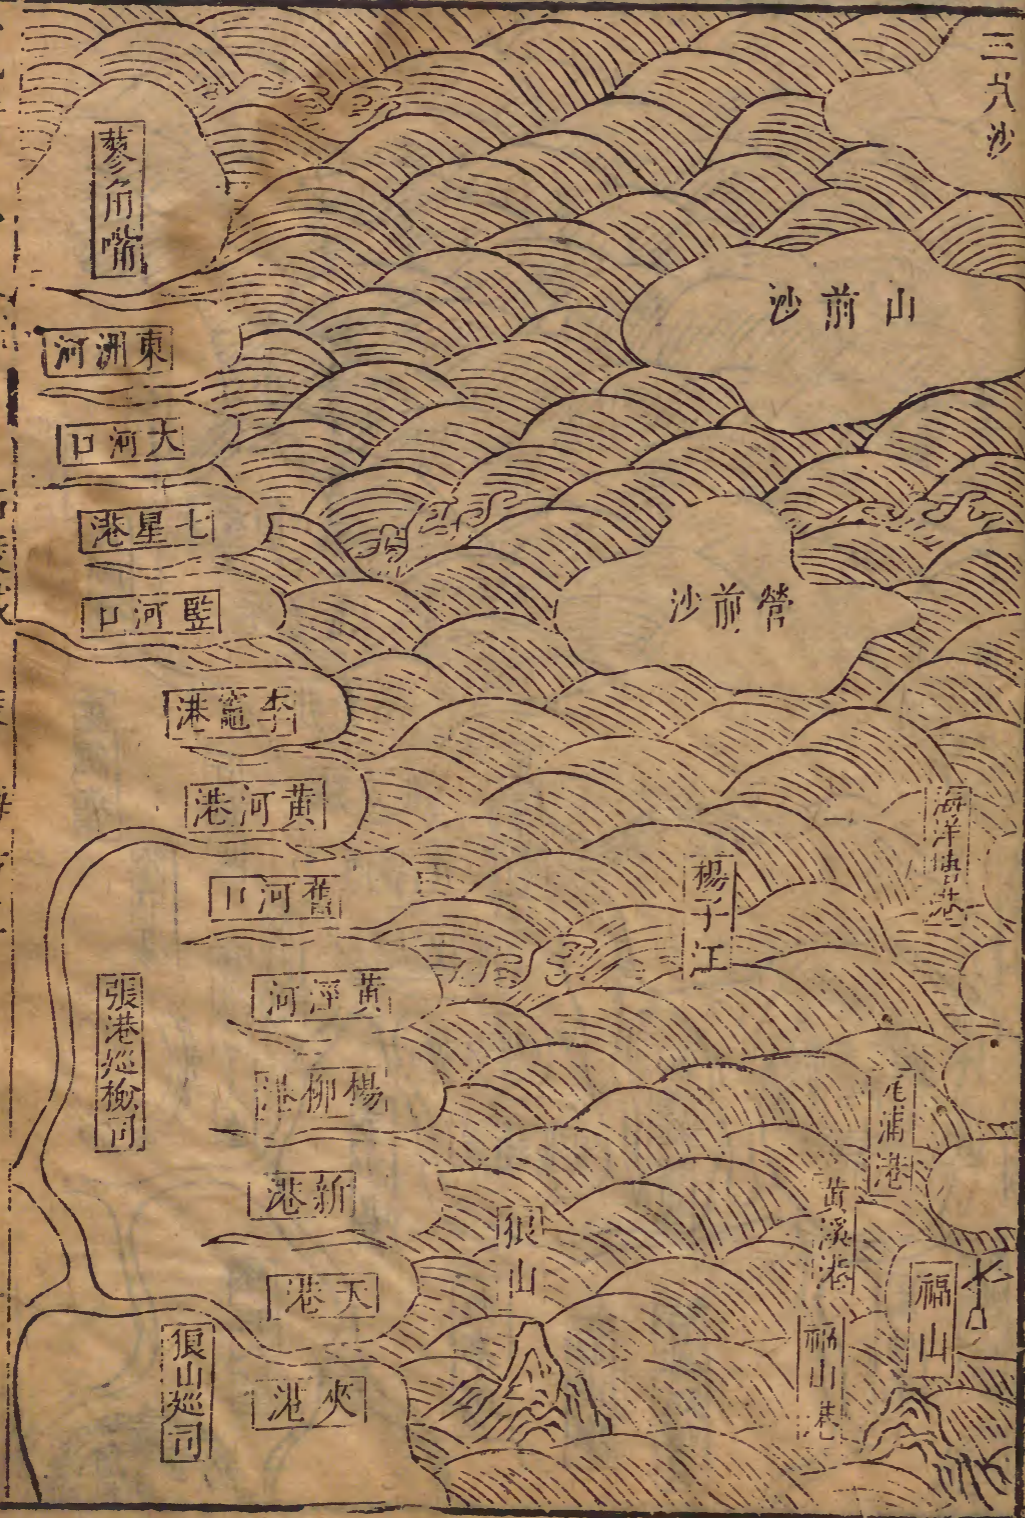 三片沙
山前沙
營前沙
海洋塘港
楊子江
毛浦港
黃溪港
福山
福山港
狼山
蓼角嘴
東洲河
大河口
七星港
監河口
李竈港
黃河港
舊河口
黃涇河
楊柳港
新港
天港
夾港
張港巡檢司
狼山巡司